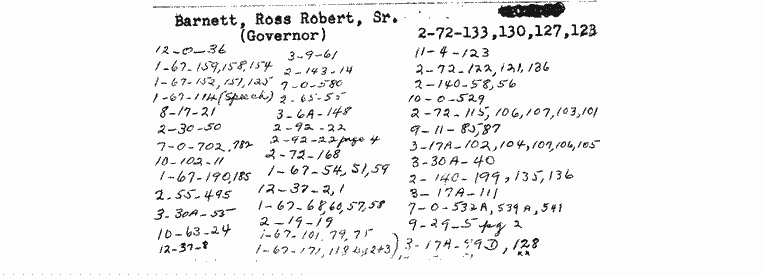 Barnett, Ross Robert, Sr.
(Governor)
2-72-133,130,127,123
12-0-36
1-67-159,158,154
1-67-152,151,125
1-67-114 (Speech)
8-17-21
2-30-50
7-0-702,782
10-102-11
1-67-190,185
2-55-495
3-30A-55
10-63-24
12-37-8
3-9-61
2-143-14
7-0-580
2-65-55
3-6A-148
2-92-22
2-92-22 page 4
2-72-168
1-67-54,51,59
12-37-2,1
1-67-68,60,57,58
2-19-19
1-67-101,79,75
1-67-171,118
11-4-123
2-72-122,121,136
2-140-58,56
10-0-529
2-72-115,106,107,103,101
9-11-85,87
3-17A-102,104,107,106,105
3-30A-40
2-140-199,135,136
3-17A-111
7-0-532A,539A,541
9-29-5 pg 2
3-17A-99D,128